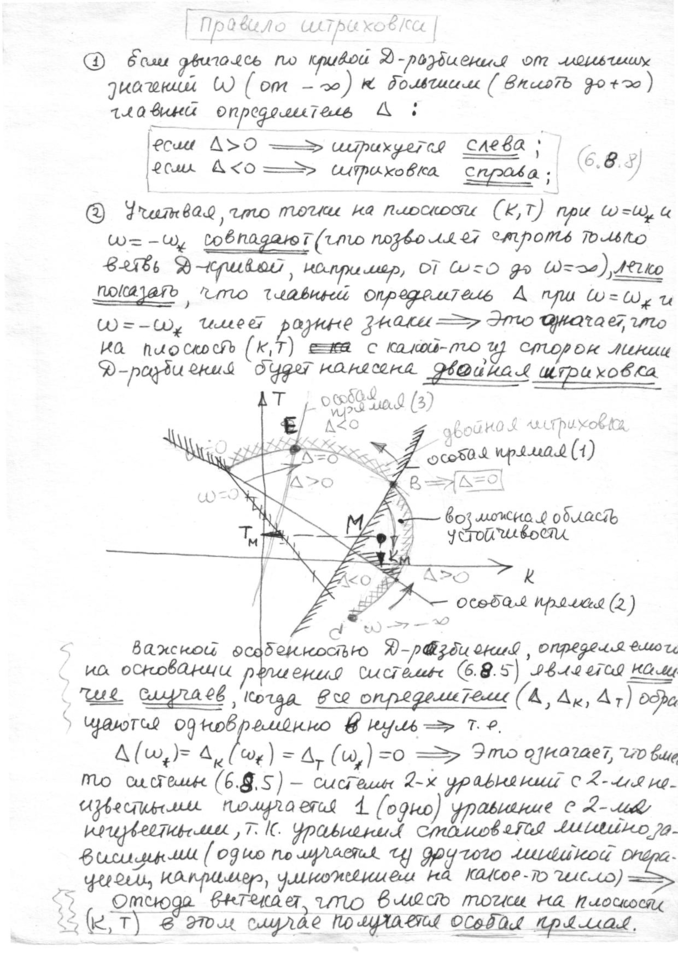 Правило штриховки
① Если двигаясь по кривой D-разбиения от меньших
значений ω (от -∞) к большим (вплоть до +∞)
главный определитель Δ :
если Δ>0 ⟹ штрихуется слева;
если Δ<0 ⟹ штриховка справа;
(6.8.8)
② Учитывая, что точки на плоскости (К,Т) при ω=ω* и
ω=-ω* совпадают (что позволяет строть только
ветвь D-кривой, например, от ω=0 до ω=∞), легко
показать, что главный определитель Δ при ω=ω* и
ω=-ω* имеет разные знаки ⟹ Это означает, что
на плоскость (К,Т) с какой-то из сторон линии
D-разбиения будет нанесена двойная штриховка
T
особая
прямая (3)
E
Δ<0
двойная штриховка
особая прямая (1)
Δ=0
B ⟹ Δ=0
Δ>0
ω=0
Tм
M
возможная область
устойчивости
Kм
Δ<0
Δ>0
К
особая прямая (2)
ω → -∞
Важной особенностью D-разбиения, определяемого
на основании решения системы (6.8.5) является нали-
чие случаев, когда все определители (Δ, ΔK, ΔT) обра
щаются одновременно в нуль ⟹ т.е.
Δ(ω*) = ΔK(ω*) = ΔT(ω*) = 0 ⟹ Это означает, что вмес
то системы (6.8.5) – системы 2-х уравнений с 2-мя не-
известными получается 1 (одно) уравнение с 2-мя
неизвестными, т.к. уравнения становятся линейно за-
висимыми (одно получается из другого линейной опера-
цией, например, умножением на какое-то число) ⟹
Отсюда вытекает, что вместо точки на плоскости
(К,Т) в этом случае получается особая прямая.